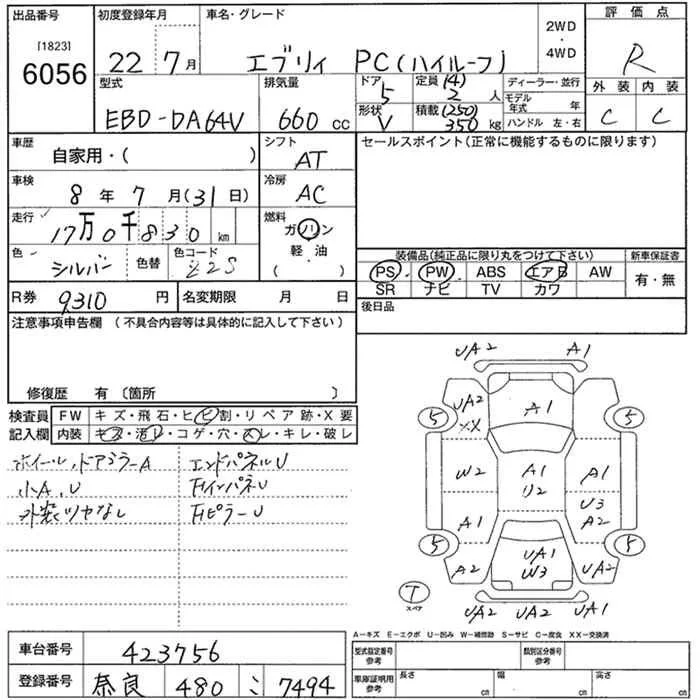 出品番号 [1823] 6056
初度登録年月 22年 7月
車名・グレード エブリィ PC(ハイルーフ)
2WD・4WD
評価点 R
外装 C 内装 C
型式 EBD-DA64V
排気量 660 cc
ドア 5
形状 V
定員 (4) 2 人
積載 (250) 350 kg
ディーラー・並行
モデル年式 年
ハンドル 左・右
車歴 自家用・( )
シフト AT
セールスポイント(正常に機能するものに限ります)
車検 8年 7月(31日)
冷房 AC
走行 17万0千830 km
燃料 ガソリン 軽・油 ( )
色 シルバー 色替 色コード Z2S
装備品(純正品に限り丸をつけて下さい)
PS PW ABS エアB AW
SR ナビ TV カワ
新車保証書 有・無
R券 9310 円 名変期限 月 日
後日品
注意事項申告欄 (不具合内容等は具体的に記入して下さい)
修復歴 有 〔箇所 〕
検査員記入欄
FW キズ・飛石・ヒビ割・リペア跡・X要
内装 キズ・汚レ・コゲ・穴・スレ・キレ・破レ
ホイール,ドアミラーA エンドパネルU
小A,U FインパネU
外装ツヤなし FピラーU
UA2 A1
UA2 XX A1
5 5
W2 A1 リ2 A1
U3 A2
A1
5 5
A2 UA1 W3 UA2
T スペア
UA2 UA2 UA1
A-キズ E-エクボ U-凹み W-補修跡 S-サビ C-腐食 XX-交換済
車台番号 423756
登録番号 奈良 480 こ 7494
型式指定番号 参考
類別区分番号 参考
車庫証明用 参考
長さ cm 幅 cm 高さ cm